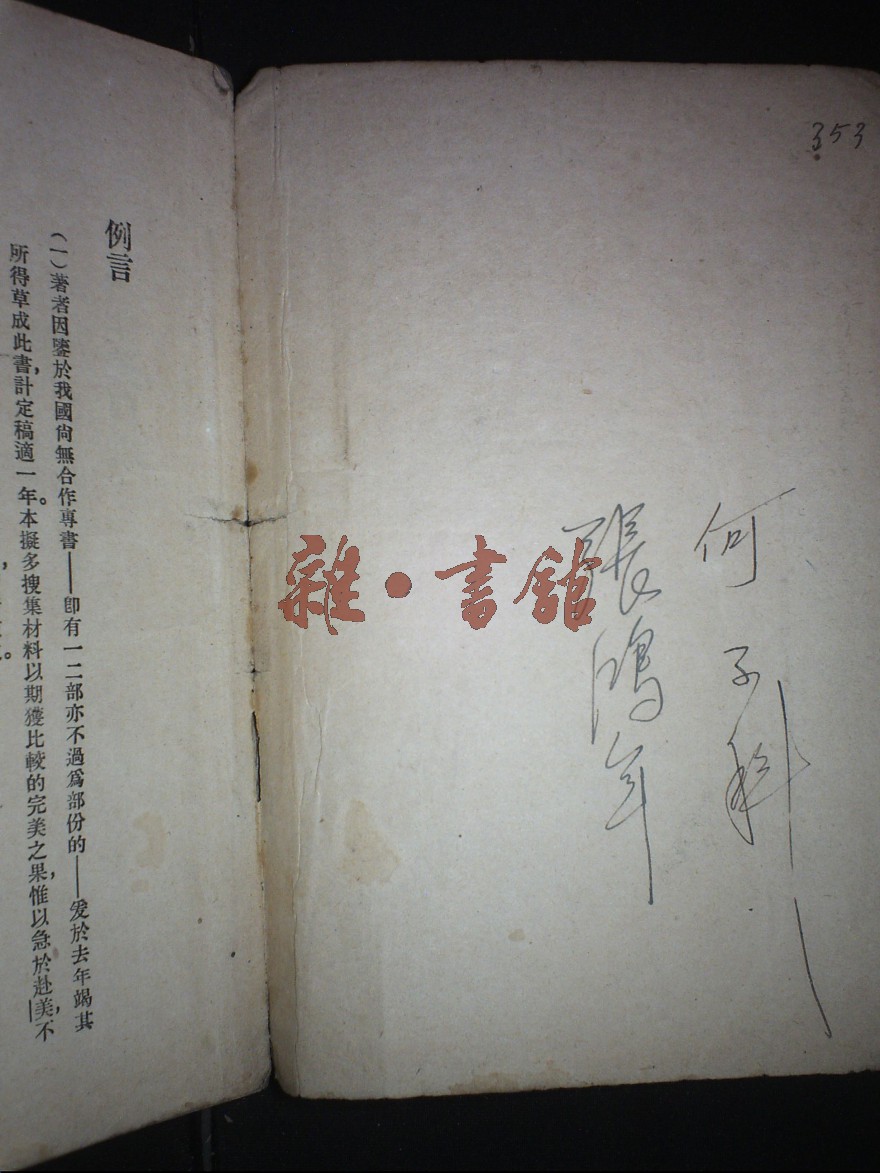 353
何子科
張鴻年
雜·書館
例言
(一)著者因鑒於我國尙無合作專書——卽有一二部亦不過爲部份的——爰於去年竭其
所得草成此書,計定稿適一年。本擬多搜集材料以期獲比較的完美之果,惟以急於赴美,不